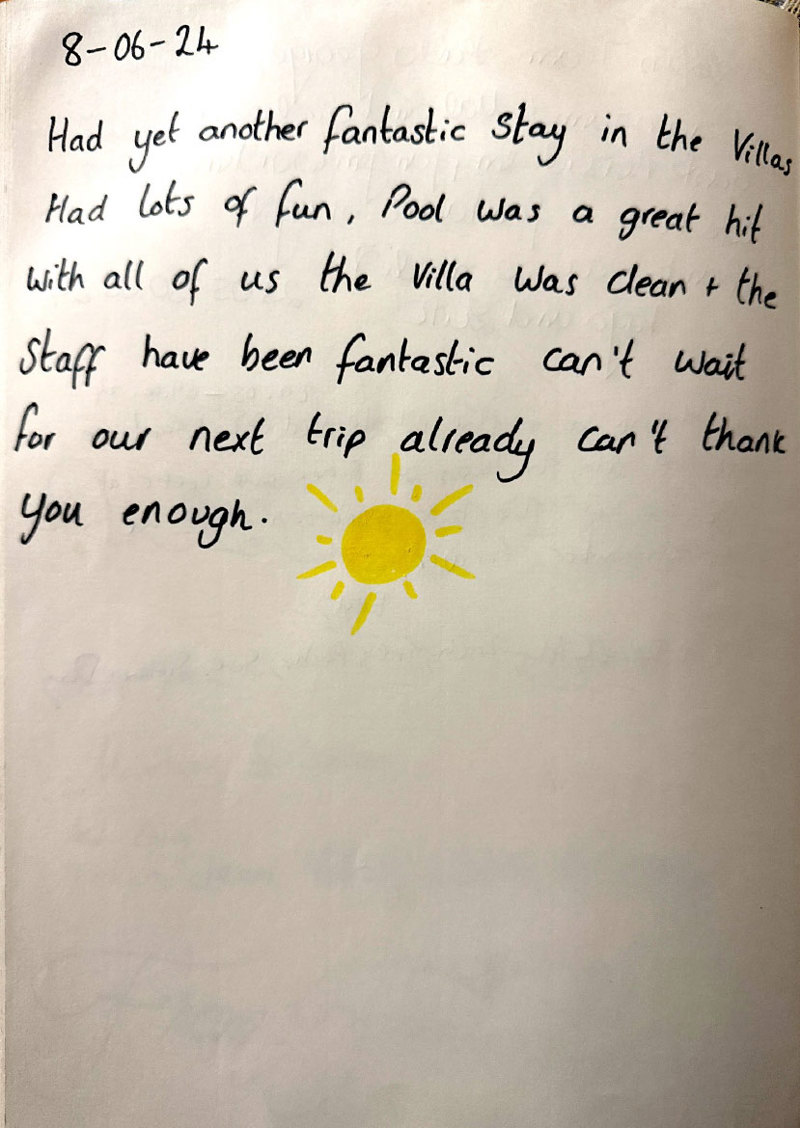 8-06-24
Had yet another fantastic stay in the Villas
Had lots of fun, Pool was a great hit
with all of us the Villa was clean + the
staff have been fantastic can't wait
for our next trip already can't thank
you enough.